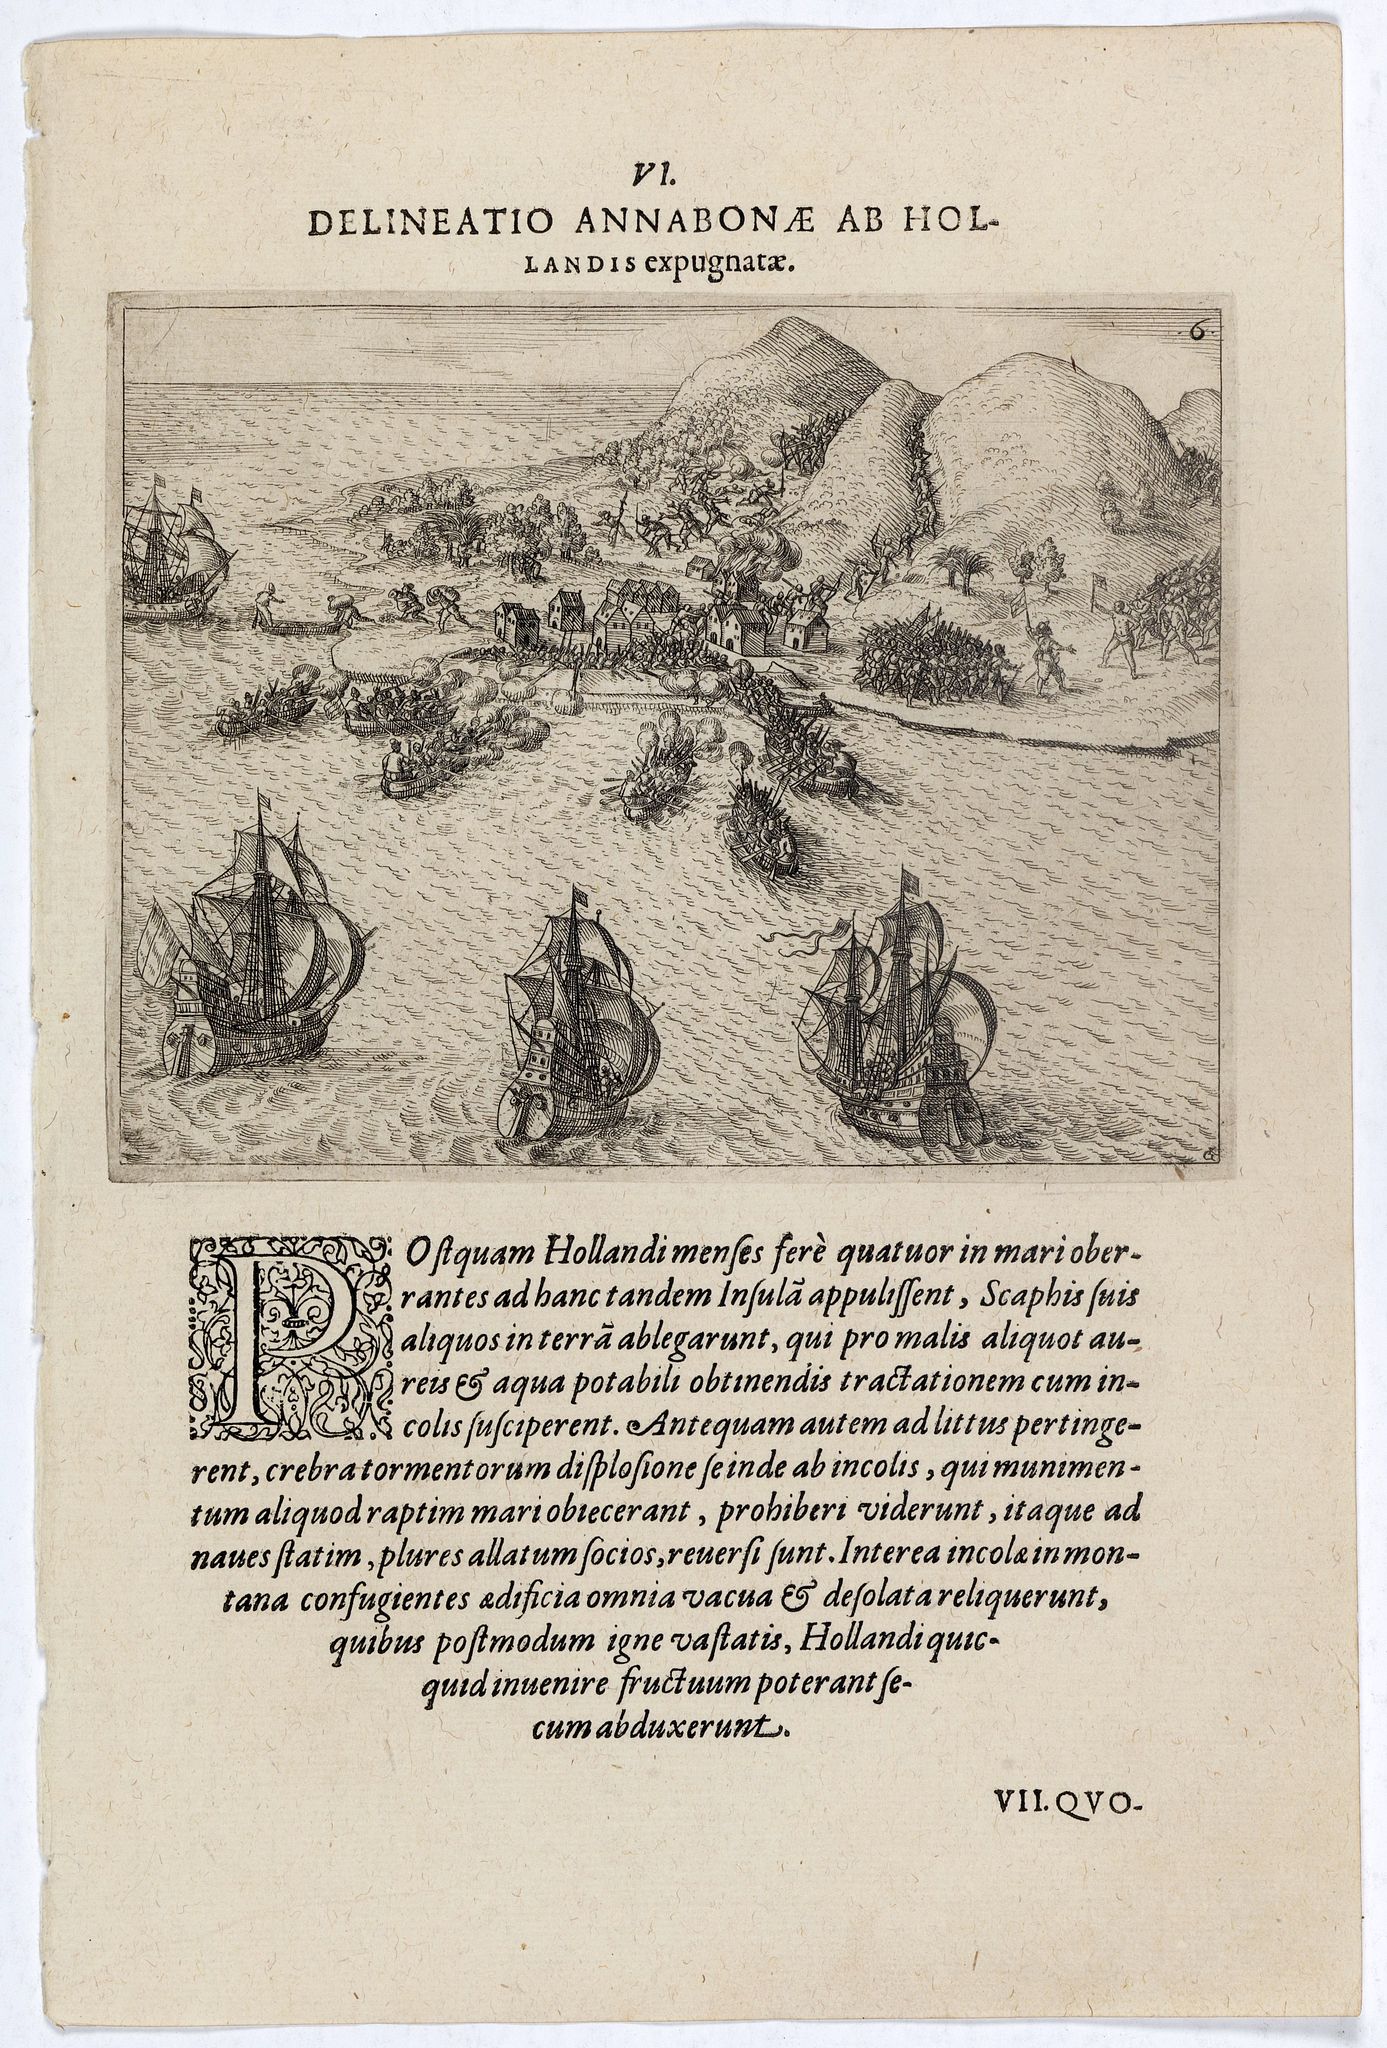 VI.
DELINEATIO ANNABONÆ AB HOL-
LANDIS expugnatæ.
6
POſtquam Hollandi menſes ferè quatuor in mari ober-
rantes ad hanc tandem Inſulã appuliſſent, Scaphis ſuis
aliquos in terrã ablegarunt, qui pro malis aliquot au-
reis & aqua potabili obtinendis tractationem cum in-
colis ſuſciperent. Antequam autem ad littus pertinge-
rent, crebra tormentorum diſploſione ſe inde ab incolis, qui munimen-
tum aliquod raptim mari obiecerant, prohiberi viderunt, itaque ad
naues ſtatim, plures allatum ſocios, reuerſi ſunt. Interea incolæ in mon-
tana confugientes ædificia omnia vacua & deſolata reliquerunt,
quibus poſtmodum igne vaſtatis, Hollandi quic-
quid inuenire fructuum poterant ſe-
cum abduxerunt.
VII. QVO-